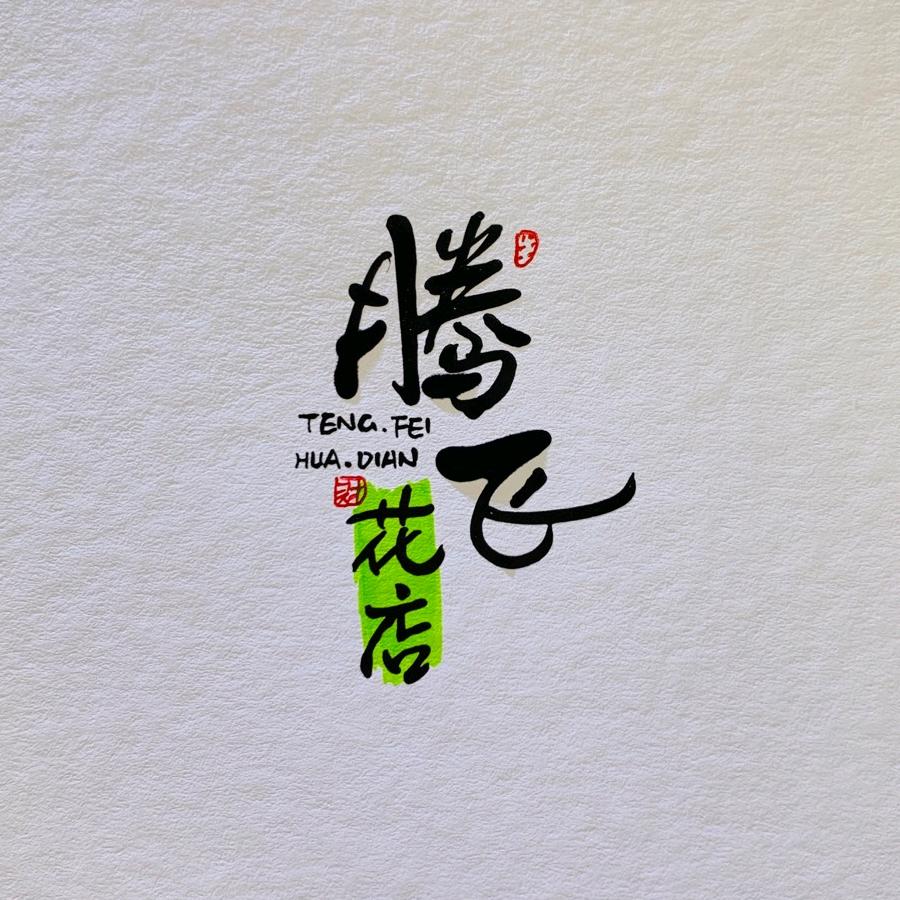 腾飞
TENG.FEI
HUA.DIAN
花店